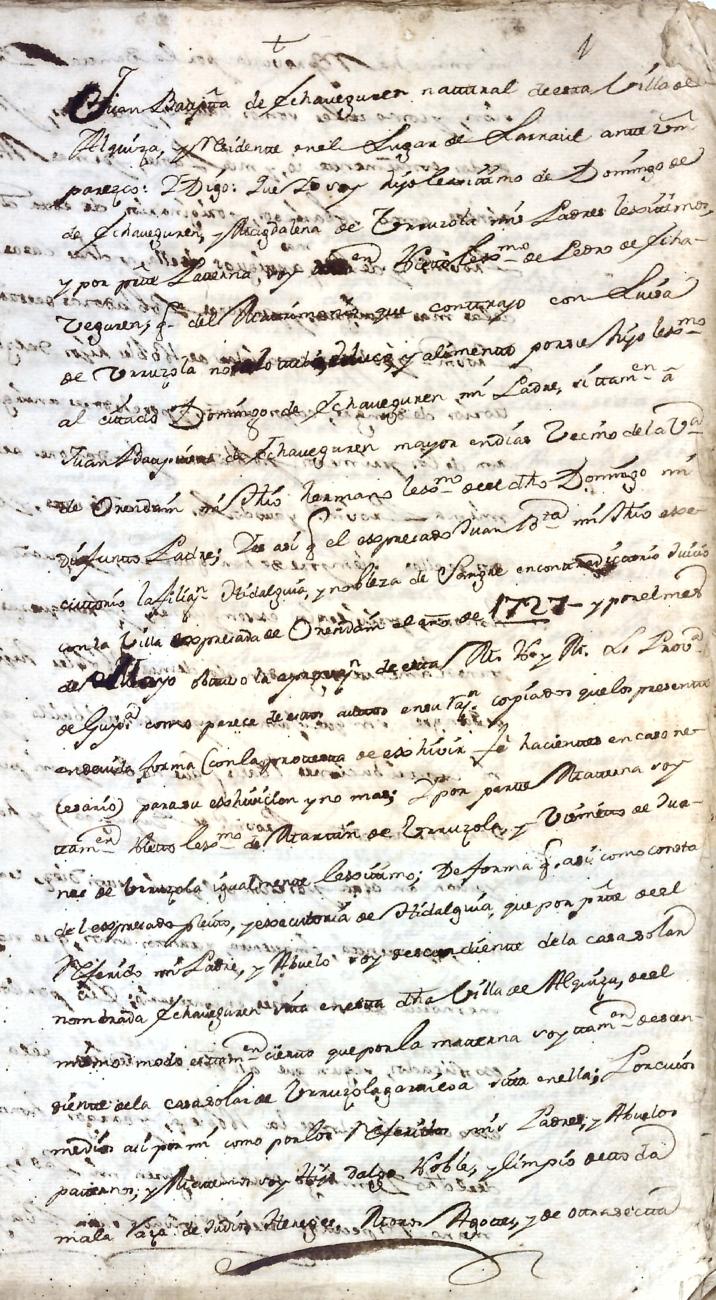 † 1
Juan Baupta de Echaveguren nattural de esta Villa de
Alquiza, y Residente en el Lugar de Larraul antte Vm
parezco: Y Digo: Que Yo soy hijo lexittimo de Domingo de
de Echaveguren, y Magdalena de Urruzola mis Padres lexitimos,
y por partte Paterna soy Nietto lexmo de Pedro de Echa-
veguren, qe del Matrimonio que contrajo con Luisa
de Urruzola y alimento por su hijo lexmo
al cittado Domingo de Echaveguren mi Padre, si ttamen â
Juan Bauptista de Echaveguren mayor en dias Vecino de la Va
de Orendain mi thio hermano lexmo de el dho Domingo mi
difuntto Padre; Y es asi q el expresado Juan Bta mi thio exe-
cuttorio la filian Hidalguia, y nobleza de Sangre en conttradictorio Juicio
con la Villa expresada de Orendain el año de 1727 y por el mes
de Mayo obtubo la de esta M. N. y M. L. Prova
de Guipa como parece de estos auttos en su rasn copiados que los presentto
en devida forma (con la protesta de exhivir feehacientes en caso ne-
cesario) para su exhivicion y no mas; Y por partte Matterna soy
ttamen Nietto lexmo de Martin de Urruzola, y Nietto de Jua-
nes de Urruzola igualmente lexittimo; De forma q. asi como consta
del expresado pleito, y executtoria de Hidalguia, que por ptte de el
Referido mi Padre, y Abuelo soy descendiente de la casa solar
nombrada Echaveguren sita en esta dha Villa de Alquiza, de el
mismo modo es ttamen cierto que por la matterna soy ttamen descen-
diente de la casa solar de Urruzola garaicoa sitta en ella; Por cuios
medios asi por mi como por los Referidos mis Padres, y Abuelos
patternos, y Matternos soy Hijo dalgo Noble, y limpio de toda
mala raza de Judios, Herejes, Moros, Agotes, y de otra secta